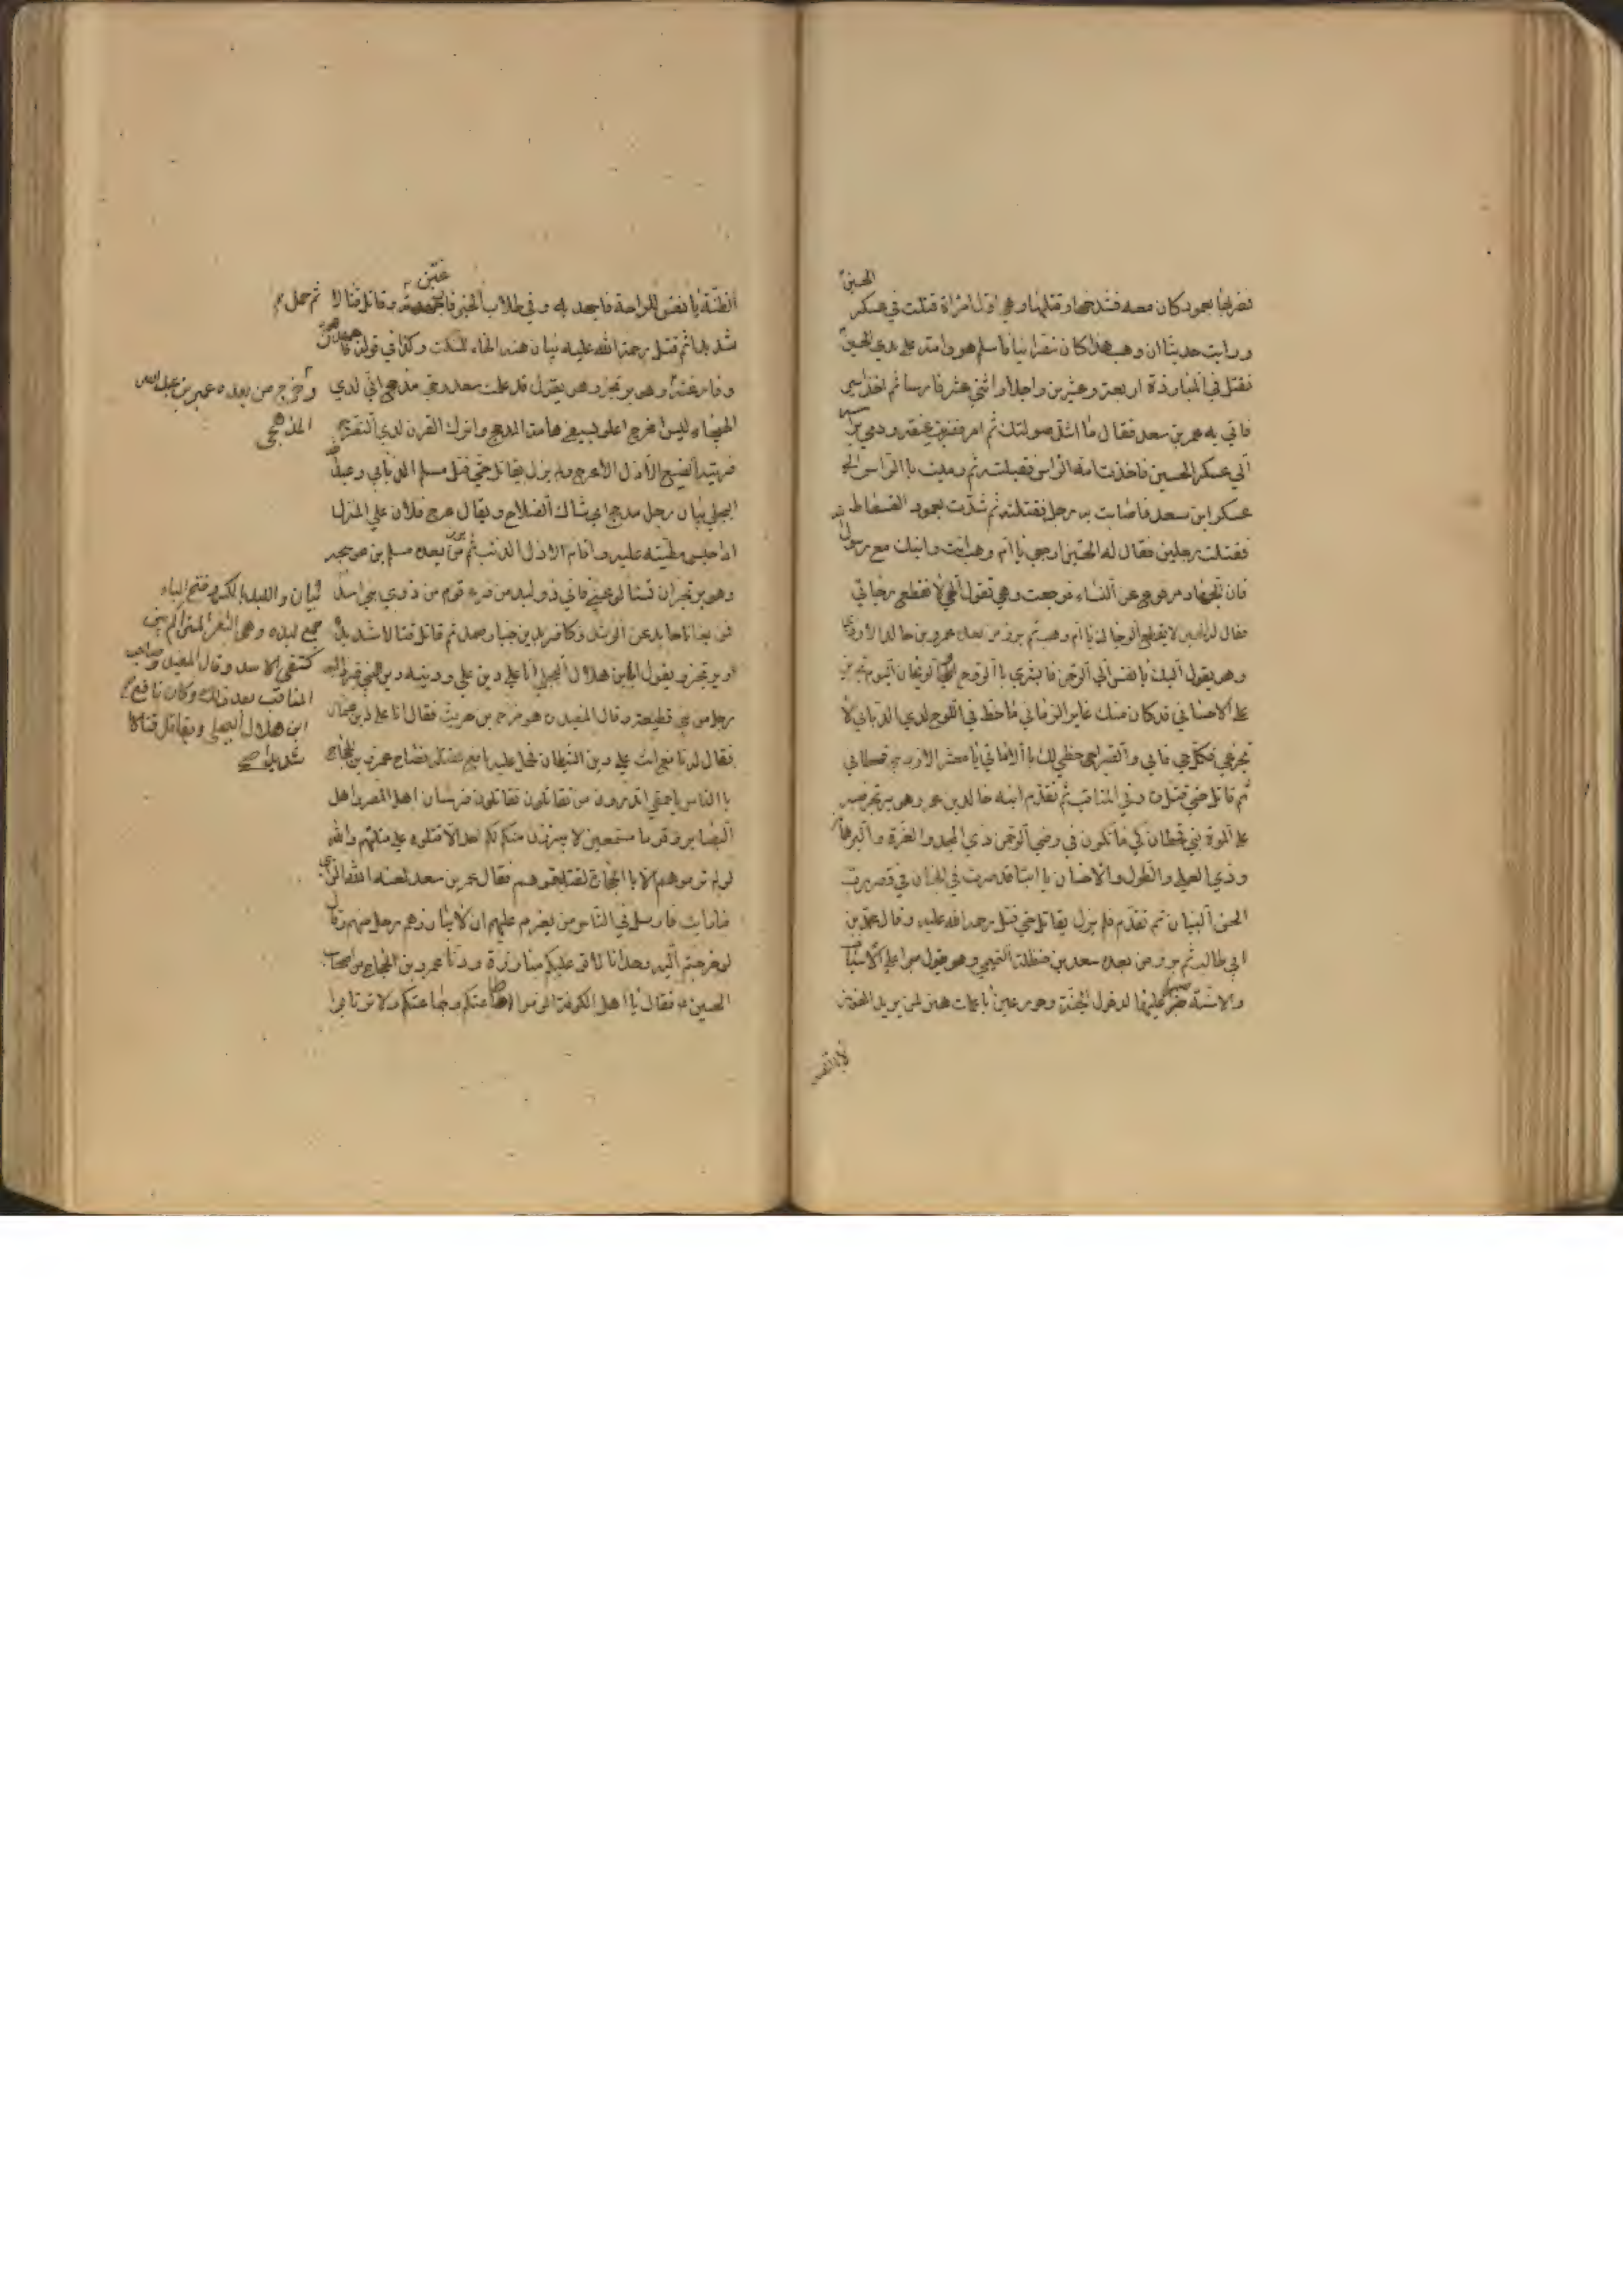 فضربها بعمود كان معه فشدخها وقتلها وهي اول امراة قتلت في عسكر
الحسين
ورايت حديثا ان وهب هذا كان نصرانيا فاسلم هو وامه على يدي الحسين
فقتل في المبارزة اربعة وعشرين راجلا واثني عشر فارسا ثم اخذ اسيرا
فاتي به عمر بن سعد فقال ما اشد صولتك ثم امر فضربت عنقه ورمي براسه
الي عسكر الحسين فاخذت امه الراس فقبلته ثم رمت بالراس الي
عسكر ابن سعد فاصابت به رجلا فقتلته ثم شدت بعمود الفسطاط
فقتلت رجلين فقال لها الحسين ارجعي يا ام وهب انت وابنك مع رسول
فان الجهاد مرفوع عن النساء فرجعت وهي تقول الهي لا تقطع رجائي
فقال لها الحسين لا يقطع الله رجاك يا ام وهب ثم برز من بعده عمرو بن خالد الازدي
وهو يقول اليك يا نفس الي الرحمن فابشري بالروح والريحان اليوم تجزين
على الاحسان قد كان منك غابر الزمان ما خط في اللوح لدي الديان لا
تجزعي فكل حي فاني والصبر احظي لك بالاماني يا معشر الازد بني قحطان
ثم قاتل حتي قتل وفي المناقب ثم تقدم ابنه خالد بن عمرو وهو يرتجز صبرا
على الموت بني قحطان كي ما تكون في رضي الرحمن ذي المجد والعزة والبرهان
وذي العلي والطول والاحسان يا ابتا قد صرت في الجنان في قصر رب
الحسن البنيان ثم تقدم فلم يزل يقاتل حتي قتل رحمه الله عليه وقال محمد بن
ابي طالب ثم برز من بعده سعد بن حنظلة التميمي وهو يقول صبرا على الاسياف
والاسنة صبرا عليها لدخول الجنة وحور عين ناعمات هن لمن يريد الفوز
لا بالظنه
الظنة يا نفس للراحة فاجهدنه وفي طلاب الخير فارغبنه وقاتل قتالا
ثم حمل
شديدا ثم قتل رحمة الله عليه بيان هذه الهاء للسكت وكذا في قوله
وخرج من بعده عمير بن عبدالله
المذحجي
وهو يرتجز وهو يقول قد علمت سعد وحي مذحج اني لدي
الهيجاء ليث اعلو بسيفي هامة المدجج واترك القرن لدي التعرج
فريسة الضبع الازل الاعرج ولم يزل يقاتل حتي قتله مسلم الضبابي وعبدالله
البجلي بيان رجل مدجج اي شاك السلاح ويقال عرج فلان علي المنزل
اذا حبس مطيته عليه واقام الازل الذئب ثم برز من بعده مسلم بن عوسجه
وهو يرتجز ان تسئلوا عني فاني ذو لبد من فرع قوم من ذري بني اسد
فمن بغانا حايد عن الرشد وكافر بدين جبار صمد ثم قاتل قتالا شديدا
بيان واللبد بالكسر وفتح الباء
جمع لبدة وهي الشعر المتراكم بين
كتفي الاسد وقال المفيد وصاحب
المناقب بعد ذلك وكان نافع
ابن هلال البجلي ويقاتل قتالا
شديدا صح
ويرتجز ويقول انا ابن هلال البجلي انا علي دين علي ودينه دين النبي فبرز اليه
رجل من بني قطيعة وقال المفيد هو مزاحم بن حريث فقال انا على دين عثمان
فقال له نافع انت على دين الشيطان فحمل عليه نافع فقتله فصاح عمرو بن الحجاج
بالناس يا حمقي اتدرون من تقاتلون تقاتلون فرسان اهل المصر واهل
البصاير وقوما مستميتين لا يبرزن منكم لهم احد الا قتلوه على قلتهم والله
لو لم ترموهم الا بالحجارة لقتلتموهم فقال عمر بن سعد لعنه الله الراي
ما رايت فارسل في الناس من يعزم عليهم ان لا يبارزهم رجل منهم وقال
لو خرجتم اليهم وحدانا لاتوا عليكم مبارزة ودنا عمرو بن الحجاج من اصحاب
الحسين فقال يا اهل الكوفة الزموا طاعتكم وجماعتكم ولا ترتابوا